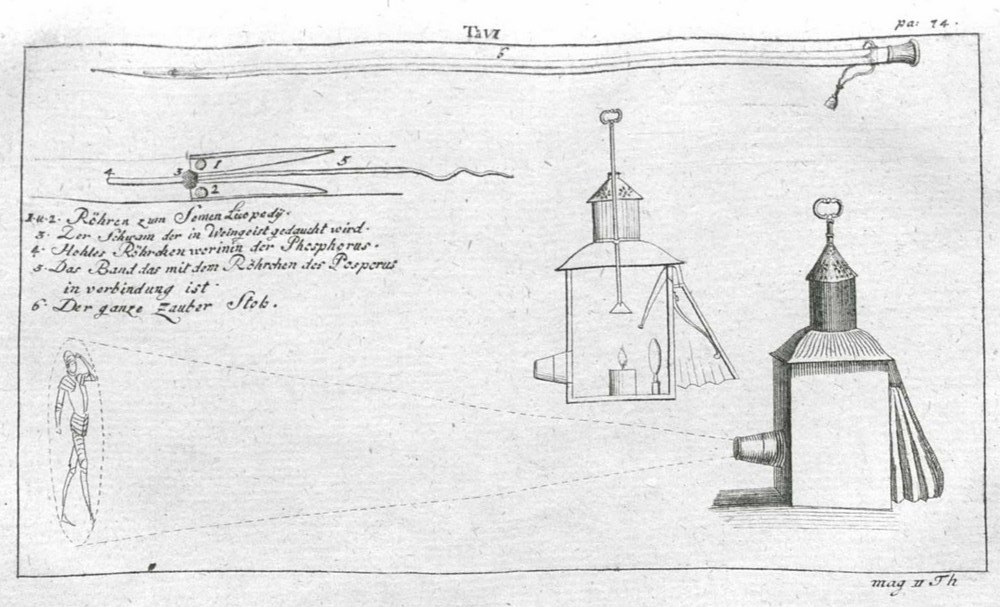 Ta VI
pa: 74.
6
1
2
3
4
5
1·u·2· Röhren zum Semen Licopodÿ·
3· Der Schwam der in Weingeist gedaucht wird·
4· Hohles Röhrchen worinin der Phosphorus·
5· Das Band das mit dem Röhrchen des Posporus
in verbindung ist·
6· Der ganze Zauber Stok·
mag II Th